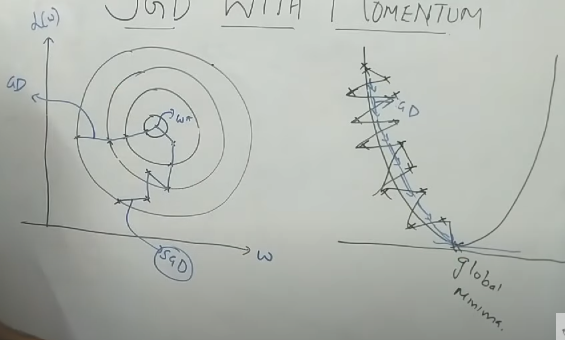 SGD WITH MOMENTUM
L(w)
GD
w*
SGD
w
GD
global
minima.